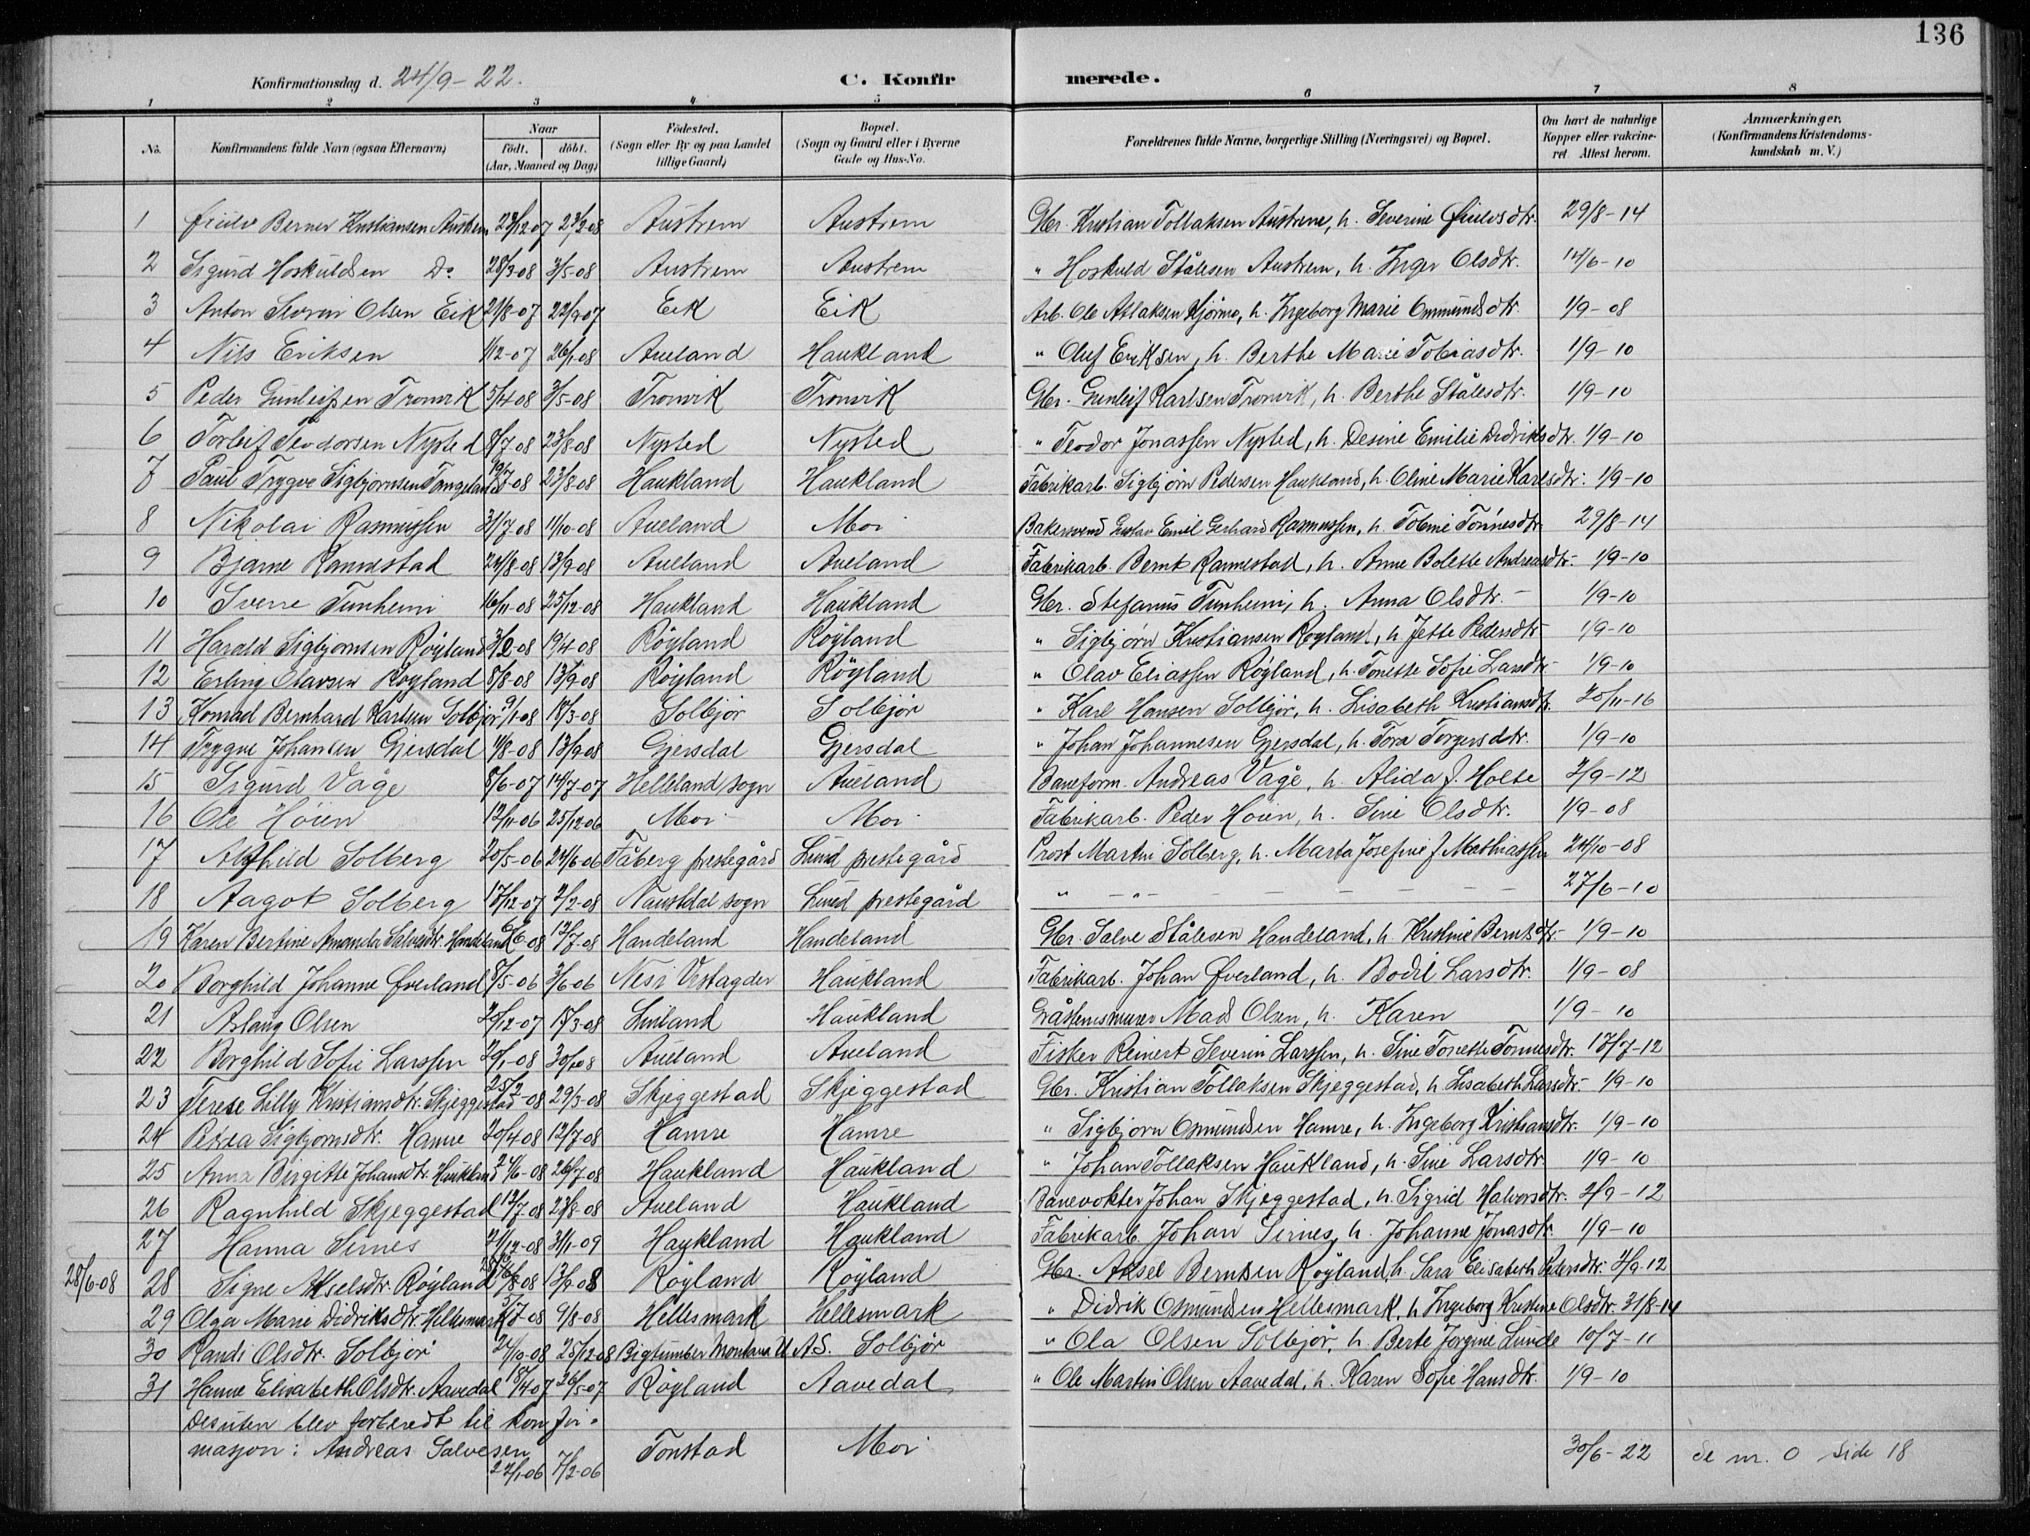 136
Konfirmationsdag d. 24/9-22. C. Konfir merede.
1 2 3 4 5 6 7 8
No. Konfirmandens fulde Navn (ogsaa Efternavn) Naar født. døbt. (Aar, Maaned og Dag) Fødested. (Sogn eller By og paa Landet tillige Gaard) Bopæl. (Sogn og Gaard eller i Byerne Gade og Hus-No. Forældrenes fulde Navne, borgerlige Stilling (Næringsvei) og Bopæl. Om havt de naturlige Kopper eller vakcineret. Attest herom. Anmærkninger. (Konfirmandens Kristendomskundskab m. V.)
1 Berner Kristiansen Austrem 23/2-08 Austrem Austrem Gbr. Kristian Tollaksen Austrem, h. Severine 29/8-14
2 Sigurd Hoskuldsen Do 28/3-08 3/5-08 Austrem Austrem " Hoskuld Stålesen Austrem, h. Inger Olsdtr. 14/6-10
3 Anton Severin Olsen Eik 21/8-07 22/9-07 Eik Eik Arb. Ole Aslaksen h. Ingeborg Marie Ommundsdtr. 1/9-08
4 Nils Eriksen 1/12-07 26/1-08 Aueland Haukland " Oluf Eriksen, h. Berthe Marie Tobiasdtr. 1/9-10
5 Peder Gunleifsen Tronvik 5/4-08 3/5-08 Tronvik Tronvik Gbr. Gunleif Karlsen Tronvik, h. Berthe Stålesdtr. 1/9-10
6 Torleif Teodorsen Nysted 8/7-08 23/8-08 Nysted Nysted " Teodor Jonassen Nysted, h. Desine Emilie Didriksdtr. 1/9-10
7 Paul Trygve Sigbjørnsen 19/7-08 23/8-08 Haukland Haukland Fabrikarb. Sigbjørn Pedersen Haukland, h. Oline Marie Karlsdtr. 1/9-10
8 Nikolai Rasmussen 31/7-08 11/10-08 Aueland Moi Bakersvend Gustav Emil Gerhard Rasmussen, h. Tobine Tønnesdtr. 29/8-14
9 Bjarne Rannestad 24/8-08 13/9-08 Aueland Aueland Fabrikarb. Bernt Rannestad, h. Anne Bolette Andreasdtr. 1/9-10
10 Sverre Tunheim 16/11-08 25/12-08 Haukland Haukland Gbr. Stefanus Tunheim, h. Anna Olsdtr. 1/9-10
11 Harald Sigbjørnsen Røyland 3/2-08 19/4-08 Røyland Røyland " Sigbjørn Kristiansen Røyland, h. Jette Pedersdtr. 1/9-10
12 Erling Olavsen Røyland 5/8-08 13/9-08 Røyland Røyland " Olav Eliassen Røyland, h. Tonette Sofie Larsdtr. 1/9-10
13 Konrad Bernhard Karlsen Solbjør 9/1-08 18/3-08 Solbjør Solbjør " Karl Hansen Solbjør, h. Lisabeth Kristiansdtr. 20/11-16
14 Trygve Johansen Gjersdal 1/8-08 13/9-08 Gjersdal Gjersdal " Johan Johannesen Gjersdal, h. Tora Torgersdtr. 1/9-10
15 Sigurd Våge 8/6-07 14/7-07 Helleland sogn Aueland Baneform. Andreas Våge, h. Alida f. Holte 2/9-12
16 Ole Høien 12/11-06 25/12-06 Moi Moi Fabrikarb. Peder Høien, h. Sine Olsdtr. 1/9-08
17 Alfhild Solberg 20/5-06 24/6-06 Fåberg prestegård Lund prestegård Prost Martin Solberg, h. Marta Josefine f. Mathiassen 24/10-08
18 Aagot Solberg 17/12-07 2/2-08 Naustdal sogn Lund prestegård " - " - 27/6-10
19 Karen Bertine Amanda Salvesdtr. Handeland 6/6-08 12/7-08 Handeland Handeland Gbr. Salve Stålesen Handeland, h. Kristine Berntsdtr. 1/9-10
20 Borghild Johanne Øverland 8/5-06 3/6-06 Nesi Vestagder Haukland Fabrikarb. Johan Øverland, h. Bodil Larsdtr. 1/9-08
21 Aslaug Olsen 15/3-08 Haukland Gråstensmurer Mads Olsen, h. Karen 1/9-10
22 Borghild Sofie Larssen 20/1-08 Aueland Aueland Fisker Reinert Severin Larssen, h. Sine Tonette Tønnesdtr. 17/7-12
23 Terese Lilly Kristiansdtr. Skjeggestad 25/2-08 29/3-08 Skjeggestad Skjeggestad Gbr. Kristian Tollaksen Skjeggestad, h. Lisabeth Larsdtr. 1/9-10
24 Petrea Sigbjørnsdtr. Hamre 20/4-08 12/7-08 Hamre Hamre " Sigbjørn Osmundsen Hamre, h. Ingeborg Kristiansdtr. 1/9-10
25 Anna Birgitte Johansdtr. Haukland 24/6-08 26/7-08 Haukland Haukland " Johan Tollaksen Haukland, h. Sine Larsdtr. 1/9-10
26 Ragnhild Skjeggestad 12/7-08 23/8-08 Aueland Haukland Banevokter Johan Skjeggestad, h. Sigrid Halvorsdtr. 2/9-12
27 Hanna Sirnes 31/1-09 Haukland Haukland Fabrikarb. Johan Sirnes, h. Johanne Jonasdtr. 1/9-10
28/6-08 28 Signe Akselsdtr. Røyland 13/9-08 Røyland Røyland Gbr. Aksel Berntsen Røyland, h. Sara Elisabeth Petersdtr. 2/9-12
29 Olga Marie Didriksdtr. Hellesmark 9/8-08 Hellesmark Hellesmark " Didrik Osmundsen Hellesmark, h. Ingeborg Kristine Olsdtr. 31/8-14
30 Randi Olsdtr. Solbjør 25/12-08 Bigtimber Montana U.A.S. Solbjør " Ola Olsen Solbjør, h. Berte Jorgine Lunde 10/7-11
31 Hanne Elisabeth Olsdtr. Aavedal 18/4-07 26/5-07 Røyland Aavedal " Ole Martin Olsen Aavedal, h. Karen Sofie Hansdtr. 1/9-10
Desuten blev forberedt til konfir-
masjon: Andreas Salvesen 22/1-06 7/2-06 Tonstad Moi 30/6-22 se nr. 0 side 18